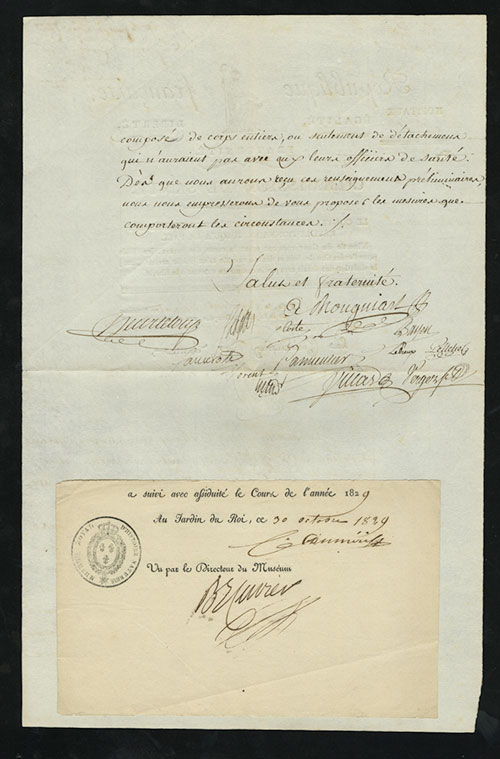 composé de corps entiers, ou seulement de détachemens
qui n'auraient pas avec eux leurs officiers de santé.
Dès que nous aurons reçu ces renseignements préliminaires,
nous nous empresserons de vous proposer les mesures que
comporteront les circonstances ./.
Salut et fraternité.
Coste
Bayen
Parmentier
Villars
a suivi avec assiduité le Cours de l'année 1829
Au Jardin du Roi, ce 30 octobre 1829
Vu par le Directeur du Muséum
Bn Cuvier
MUSEUM ROYAL D'HISTOIRE NATURELLE